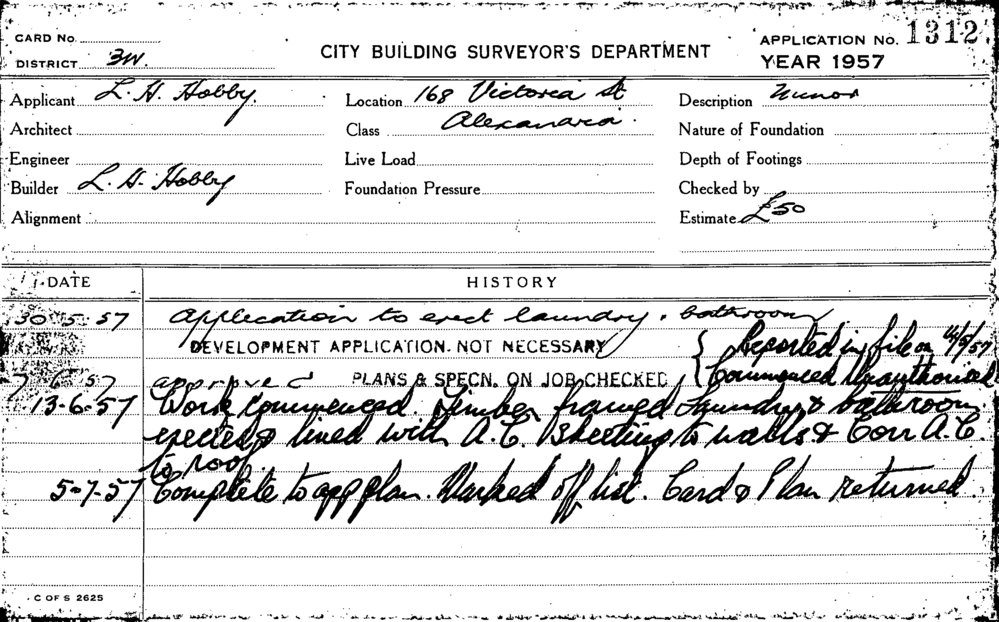 CARD No.
CITY BUILDING SURVEYOR'S DEPARTMENT
APPLICATION No. 1312
DISTRICT 3W.
YEAR 1957
Applicant L. H. Hobby.
Location 168 Victoria St
Description Minor
Architect
Class Alexandria.
Nature of Foundation
Engineer
Live Load
Depth of Footings
Builder L. H. Hobby
Foundation Pressure
Checked by
Alignment
Estimate £50
DATE
HISTORY
30-5-57 Application to erect laundry & bathroom
DEVELOPMENT APPLICATION. NOT NECESSARY
{ Reported in file on /5/57
7-6-57 approved PLANS & SPECN. ON JOB CHECKED
Commenced Unauthorised
13-6-57 Work commenced. Timber framed Laundry & bathroom
erected & lined with A.C. Sheeting to walls & Corr A.C.
to roof.
5-7-57 Complete to app plan. Marked off list. Card & Plan returned.
C OF S 2625